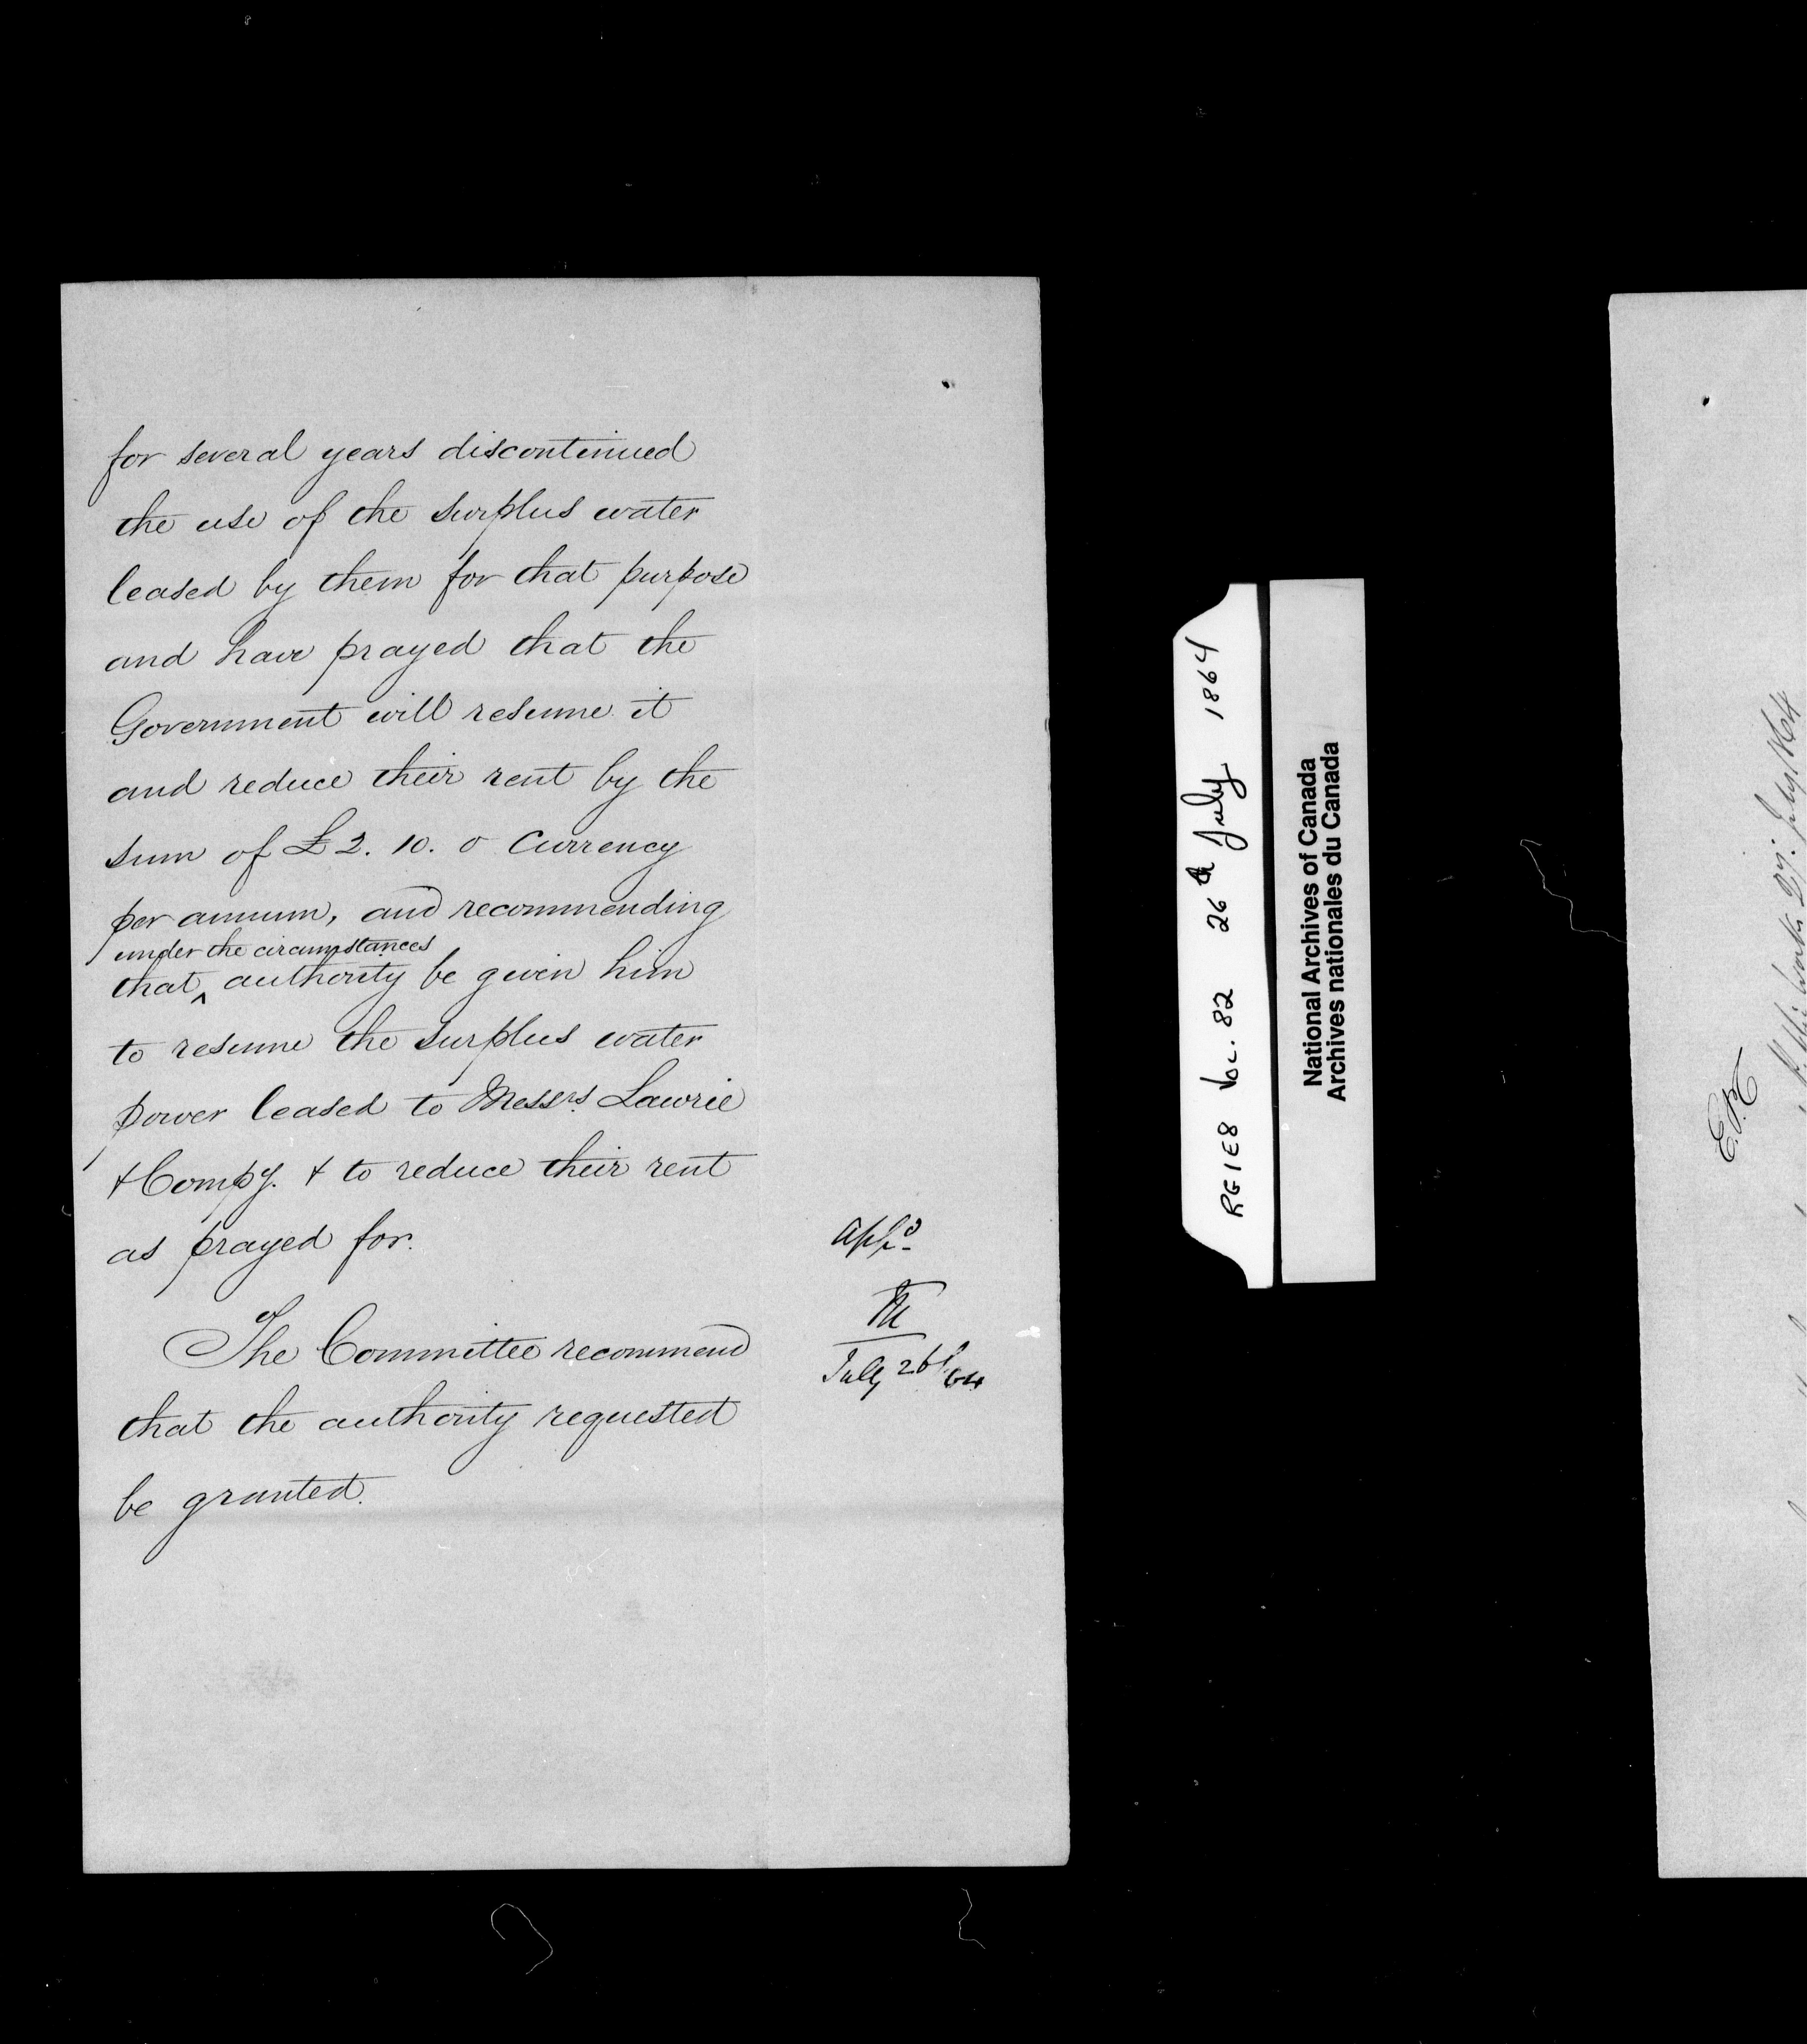 for several years discontinued
the use of the surplus water
leased by them for that purpose
and have prayed that the
Government will resume it
and reduce their rent by the
sum of £2. 10. 0 Currency
per annum, and recommending
under the circumstances
that ^ authority be given him
to resume the surplus water
power leased to Messrs Lawrie
& Compy. & to reduce their rent
as prayed for.
The Committee recommend
that the authority requested
be granted.
appd
M
July 26/64
RG1E8 Vol. 82 26th July 1864
National Archives of Canada
Archives nationales du Canada
27. July 1864